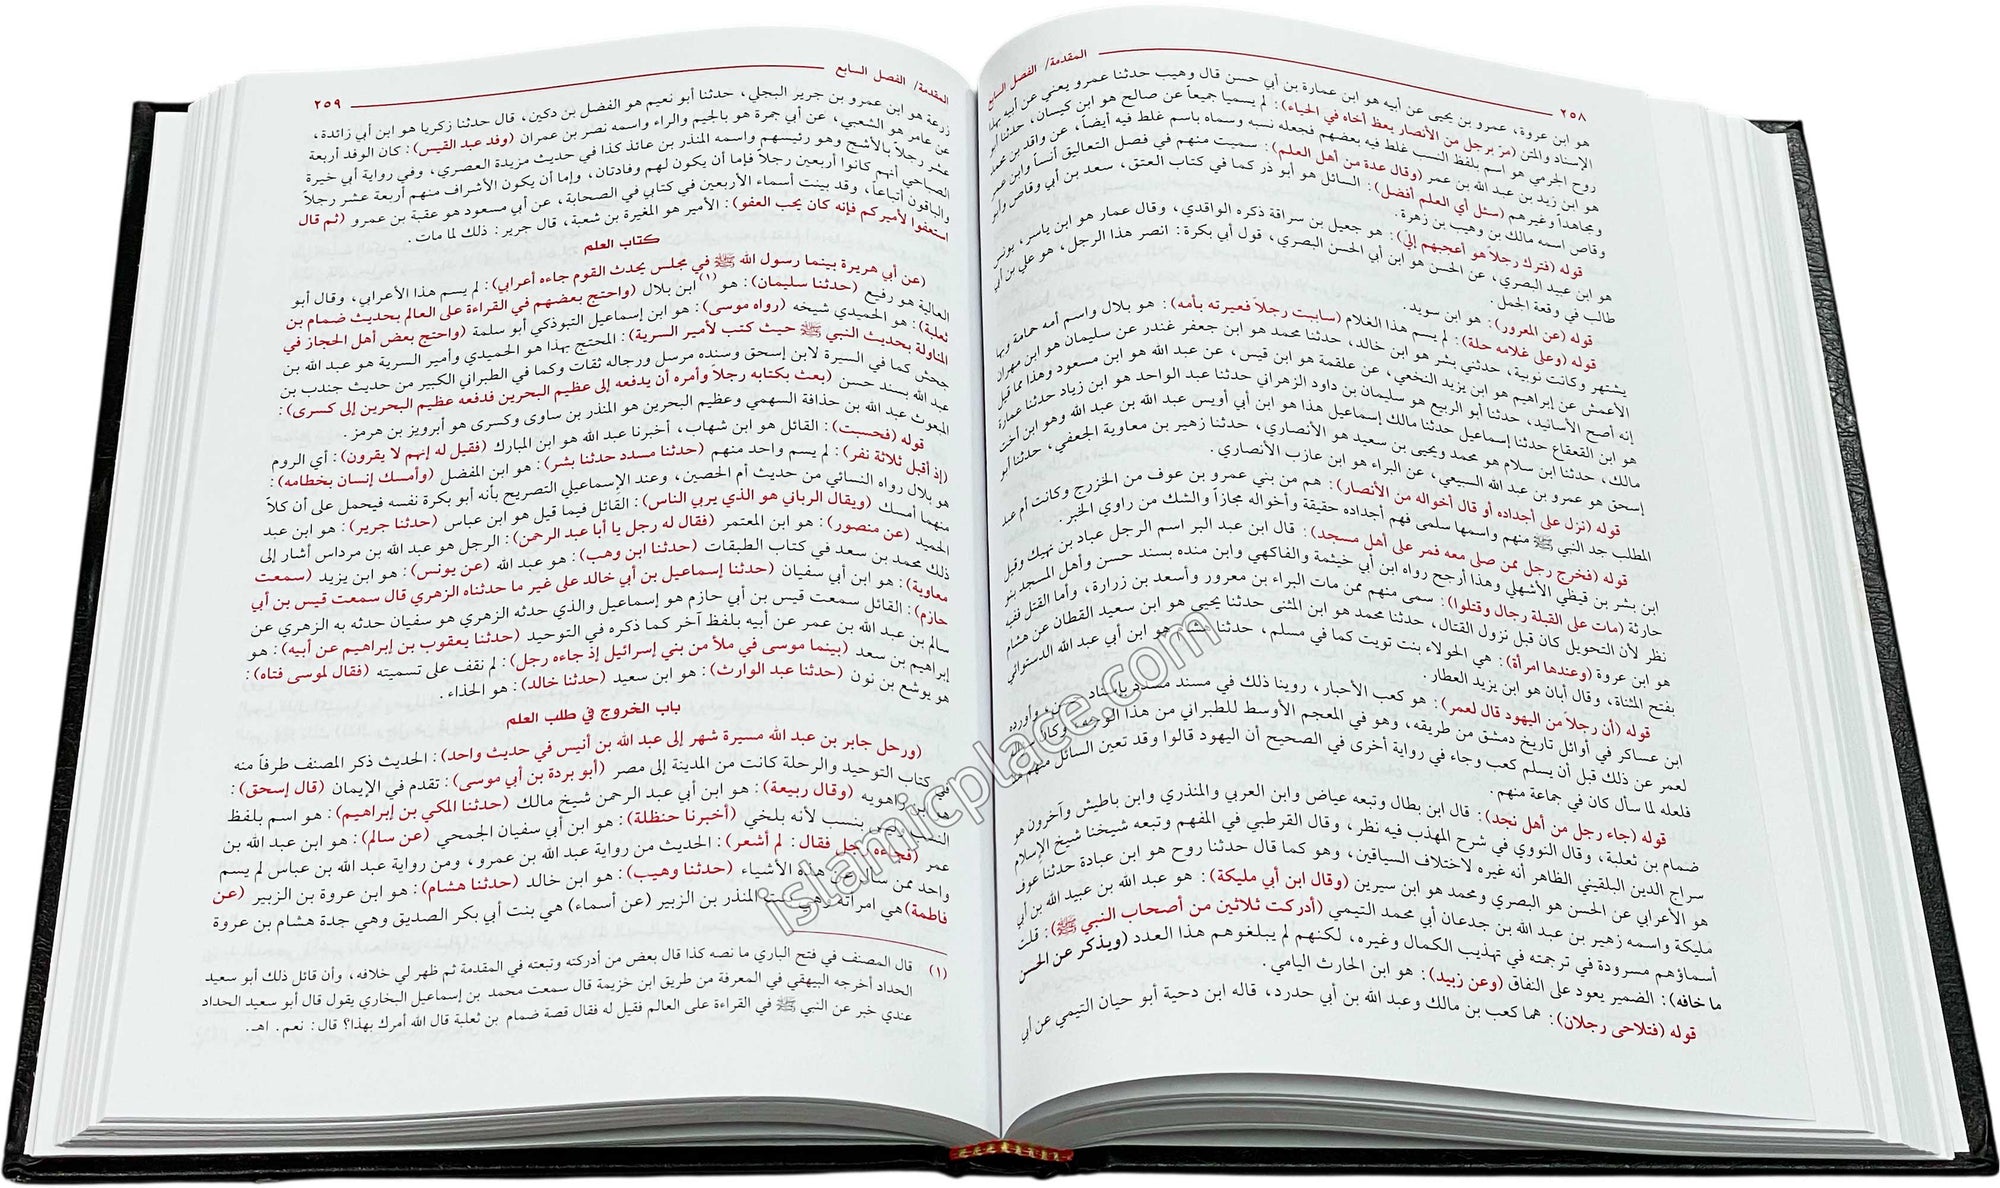 ٢٥٨ المقدمة/ الفصل السابع
هو ابن عروة، عمرو بن يحيى عن أبيه هو ابن عمارة بن أبي حسن قال وهيب حدثنا عمرو يعني عن أبيه بهذا
الإسناد والمتن (مرّ برجل من الأنصار يعظ أخاه في الحياء): لم يسميا جميعاً عن صالح هو ابن كيسان، حدثنا أبو
روح الجرمي هو اسم بلفظ النسب غلط فيه بعضهم فجعله نسبه وسماه باسم غلط فيه أيضاً، عن واقد بن محمد
هو ابن زيد بن عبد الله بن عمر (وقال عدة من أهل العلم): سميت منهم في فصل التعاليق أنساً وابن عمر
ومجاهداً وغيرهم (سئل أي العلم أفضل): السائل هو أبو ذر كما في كتاب العتق، سعد بن أبي وقاص وأبو
وقاص اسمه مالك بن وهيب بن زهرة.
قوله (فترك رجلاً هو أعجبهم إليّ): هو جعيل بن سراقة ذكره الواقدي، وقال عمار هو ابن ياسر، يونس
هو ابن عبيد البصري، عن الحسن هو ابن أبي الحسن البصري، قول أبي بكرة: انصر هذا الرجل، هو علي بن أبي
طالب في وقعة الجمل.
قوله (عن المعرور): هو ابن سويد.
قوله (وعلى غلامه حلة): لم يسم هذا الغلام (ساببت رجلاً فعيرته بأمه): هو بلال واسم أمه حمامة وبها
يشتهر وكانت نوبية، حدثني بشر هو ابن خالد، حدثنا محمد هو ابن جعفر غندر عن سليمان هو ابن مهران
الأعمش عن إبراهيم هو ابن يزيد النخعي، عن علقمة هو ابن قيس، عن عبد الله هو ابن مسعود وهذا مما قيل
إنه أصح الأسانيد، حدثنا أبو الربيع هو سليمان بن داود الزهراني حدثنا عبد الواحد هو ابن زياد حدثنا عمارة
هو ابن القعقاع حدثنا إسماعيل حدثنا مالك إسماعيل هذا هو ابن أبي أويس عبد الله بن عبد الله وهو ابن أخت
مالك، حدثنا ابن سلام هو محمد ويحيى بن سعيد هو الأنصاري، حدثنا زهير بن معاوية الجعفي، حدثنا أبو
إسحق هو عمرو بن عبد الله السبيعي، عن البراء هو ابن عازب الأنصاري.
قوله (نزل على أجداده أو قال أخواله من الأنصار): هم من بني عمرو بن عوف من الخزرج وكانت أم عبد
المطلب جد النبي ﷺ منهم واسمها سلمى فهم أجداده حقيقة وأخواله مجازاً والشك من راوي الخبر.
قوله (فخرج رجل ممن صلى معه فمر على أهل مسجد): قال ابن عبد البر اسم الرجل عباد بن نهيك وقيل
ابن بشر بن قيظي الأشهلي وهذا أرجح رواه ابن أبي خيثمة والفاكهي وابن منده بسند حسن وأهل المسجد بنو
حارثة (مات على القبلة رجال وقتلوا): سمى منهم ممن مات البراء بن معرور وأسعد بن زرارة، وأما القتل ففيه
نظر لأن التحويل كان قبل نزول القتال، حدثنا محمد هو ابن المثنى حدثنا يحيى هو ابن سعيد القطان عن هشام
هو ابن عروة (وعندها امرأة): هي الحولاء بنت تويت كما في مسلم، حدثنا هشام هو ابن أبي عبد الله الدستوائي
بفتح المثناة، وقال أبان هو ابن يزيد العطار.
قوله (أن رجلاً من اليهود قال لعمر): هو كعب الأحبار، روينا ذلك في مسند مسدد بإسناد حسن، وأورده
ابن عساكر في أوائل تاريخ دمشق من طريقه، وهو في المعجم الأوسط للطبراني من هذا الوجه وكان سؤاله
لعمر عن ذلك قبل أن يسلم كعب وجاء في رواية أخرى في الصحيح أن اليهود قالوا وقد تعين السائل منهم هنا
فلعله لما سأل كان في جماعة منهم.
قوله (جاء رجل من أهل نجد): قال ابن بطال وتبعه عياض وابن العربي والمنذري وابن باطيش وآخرون هو
ضمام بن ثعلبة، وقال النووي في شرح المهذب فيه نظر، وقال القرطبي في المفهم وتبعه شيخنا شيخ الإسلام
سراج الدين البلقيني الظاهر أنه غيره لاختلاف السياقين، وهو كما قال حدثنا روح هو ابن عبادة حدثنا عوف
هو الأعرابي عن الحسن هو البصري ومحمد هو ابن سيرين (وقال ابن أبي مليكة): هو عبد الله بن عبيد الله بن أبي
مليكة واسمه زهير بن عبد الله بن جدعان أبي محمد التيمي (أدركت ثلاثين من أصحاب النبي ﷺ): قلت
أسماؤهم مسرودة في ترجمته في تهذيب الكمال وغيره، لكنهم لم يبلغوهم هذا العدد (ويذكر عن الحسن
ما خافه): الضمير يعود على النفاق (وعن زبيد): هو ابن الحارث اليامي.
قوله (فتلاحى رجلان): هما كعب بن مالك وعبد الله بن أبي حدرد، قاله ابن دحية أبو حيان التيمي عن أبي
المقدمة/ الفصل السابع ٢٥٩
زرعة هو ابن عمرو بن جرير البجلي، حدثنا أبو نعيم هو الفضل بن دكين، قال حدثنا زكريا هو ابن أبي زائدة،
عن عامر هو الشعبي، عن أبي جمرة هو بالجيم والراء واسمه نصر بن عمران (وفد عبد القيس): كان الوفد أربعة
عشر رجلاً بالأشج وهو رئيسهم واسمه المنذر بن عائذ كذا في حديث مزيدة العصري، وفي رواية أبي خيرة
الصباحي أنهم كانوا أربعين رجلاً فإما أن يكون لهم وفادتان، وإما أن يكون الأشراف منهم أربعة عشر رجلاً
والباقون أتباعاً، وقد بينت أسماء الأربعين في كتابي في الصحابة، عن أبي مسعود هو عقبة بن عمرو (ثم قال
استعفوا لأميركم فإنه كان يحب العفو): الأمير هو المغيرة بن شعبة، قال جرير: ذلك لما مات.
كتاب العلم
(عن أبي هريرة بينما رسول الله ﷺ في مجلس يحدث القوم جاءه أعرابي): لم يسم هذا الأعرابي، وقال أبو
العالية هو رفيع (حدثنا سليمان): هو(١) ابن بلال (واحتج بعضهم في القراءة على العالم بحديث ضمام بن
ثعلبة): هو الحميدي شيخه (رواه موسى): هو ابن إسماعيل التبوذكي أبو سلمة (واحتج بعض أهل الحجاز في
المناولة بحديث النبي ﷺ حيث كتب لأمير السرية): المحتج بهذا هو الحميدي وأمير السرية هو عبد الله بن
جحش كما في السيرة لابن إسحق وسنده مرسل ورجاله ثقات وكما في الطبراني الكبير من حديث جندب بن
عبد الله بسند حسن (بعث بكتابه رجلاً وأمره أن يدفعه إلى عظيم البحرين فدفعه عظيم البحرين إلى كسرى):
المبعوث عبد الله بن حذافة السهمي وعظيم البحرين هو المنذر بن ساوى وكسرى هو أبرويز بن هرمز.
قوله (فحسبت): القائل هو ابن شهاب، أخبرنا عبد الله هو ابن المبارك (فقيل له إنهم لا يقرون): أي الروم
(إذ أقبل ثلاثة نفر): لم يسم واحد منهم (حدثنا مسدد حدثنا بشر): هو ابن المفضل (وأمسك إنسان بخطامه):
هو بلال رواه النسائي من حديث أم الحصين، وعند الإسماعيلي التصريح بأنه أبو بكرة نفسه فيحمل على أن كلاً
منهما أمسك (ويقال الرباني هو الذي يربي الناس): القائل فيما قيل هو ابن عباس (حدثنا جرير): هو ابن عبد
الحميد (عن منصور): هو ابن المعتمر (فقال له رجل يا أبا عبد الرحمن): الرجل هو عبد الله بن مرداس أشار إلى
ذلك محمد بن سعد في كتاب الطبقات (حدثنا ابن وهب): هو عبد الله (عن يونس): هو ابن يزيد (سمعت
معاوية): هو ابن أبي سفيان (حدثنا إسماعيل بن أبي خالد على غير ما حدثناه الزهري قال سمعت قيس بن أبي
حازم): القائل سمعت قيس بن أبي حازم هو إسماعيل والذي حدثه الزهري هو سفيان حدثه به الزهري عن
سالم بن عبد الله بن عمر عن أبيه بلفظ آخر كما ذكره في التوحيد (حدثنا يعقوب بن إبراهيم عن أبيه): هو
إبراهيم بن سعد (بينما موسى في ملأ من بني إسرائيل إذ جاءه رجل): لم نقف على تسميته (فقال لموسى فتاه):
هو يوشع بن نون (حدثنا عبد الوارث): هو ابن سعيد (حدثنا خالد): هو الحذاء.
باب الخروج في طلب العلم
(ورحل جابر بن عبد الله مسيرة شهر إلى عبد الله بن أنيس في حديث واحد): الحديث ذكر المصنف طرفاً منه
في كتاب التوحيد والرحلة كانت من المدينة إلى مصر (أبو بردة بن أبي موسى): تقدم في الإيمان (قال إسحق):
هو ابن راهويه (وقال ربيعة): هو ابن أبي عبد الرحمن شيخ مالك (حدثنا المكي بن إبراهيم): هو اسم بلفظ
النسب وليس بنسب لأنه بلخي (أخبرنا حنظلة): هو ابن أبي سفيان الجمحي (عن سالم): هو ابن عبد الله بن
عمر (فجاءه رجل فقال: لم أشعر): الحديث من رواية عبد الله بن عمرو، ومن رواية عبد الله بن عباس لم يسم
واحد ممن سأل عن هذه الأشياء (حدثنا وهيب): هو ابن خالد (حدثنا هشام): هو ابن عروة بن الزبير (عن
فاطمة) هي امرأته وهي بنت المنذر بن الزبير (عن أسماء) هي بنت أبي بكر الصديق وهي جدة هشام بن عروة
(١) قال المصنف في فتح الباري ما نصه كذا قال بعض من أدركته وتبعته في المقدمة ثم ظهر لي خلافه، وأن قائل ذلك أبو سعيد
الحداد أخرجه البيهقي في المعرفة من طريق ابن خزيمة قال سمعت محمد بن إسماعيل البخاري يقول قال أبو سعيد الحداد
عندي خبر عن النبي ﷺ في القراءة على العالم فقيل له فقال قصة ضمام بن ثعلبة قال آلله أمرك بهذا؟ قال: نعم. اهـ.
islamicplace.com